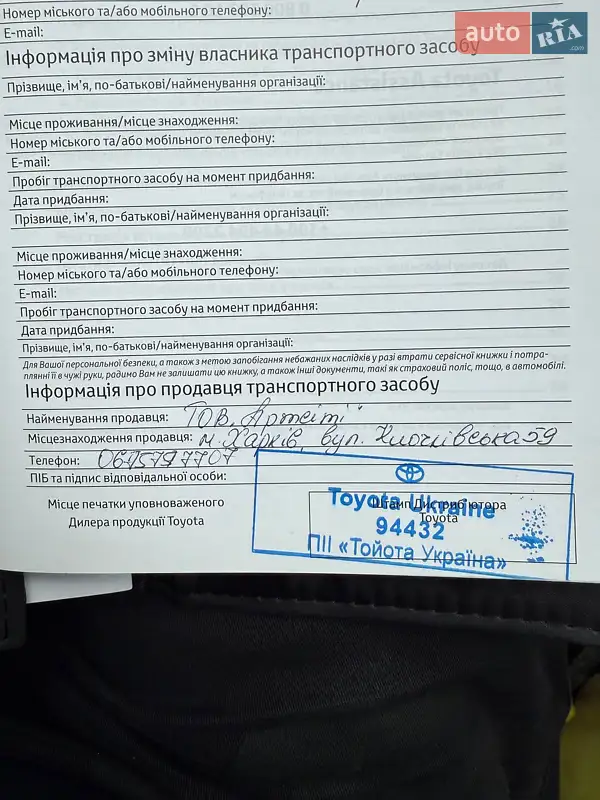 Номер міського та/або мобільного телефону:
E-mail:
auto RIA .com
Інформація про зміну власника транспортного засобу
Прізвище, ім'я, по-батькові/найменування організації:
Місце проживання/місце знаходження:
Номер міського та/або мобільного телефону:
E-mail:
Пробіг транспортного засобу на момент придбання:
Дата придбання:
Прізвище, ім'я, по-батькові/найменування організації:
Місце проживання/місце знаходження:
Номер міського та/або мобільного телефону:
E-mail:
Пробіг транспортного засобу на момент придбання:
Дата придбання:
Прізвище, ім'я, по-батькові/найменування організації:
Для Вашої персональної безпеки, а також з метою запобігання небажаних наслідків у разі втрати сервісної книжки і потра-
плянні її в чужі руки, радимо Вам не залишати цю книжку, а також інші документи, такі як страховий поліс, тощо, в автомобілі.
Інформація про продавця транспортного засобу
Найменування продавця: ТОВ. Артсіті
Місцезнаходження продавця: м. Харків, вул. Клочківська 59
Телефон: 0675797707
ПІБ та підпис відповідальної особи:
Місце печатки уповноваженого
Дилера продукції Toyota
Штамп Дистриб'ютора
Toyota
Toyota Ukraine
94432
ПІІ «Тойота Україна»